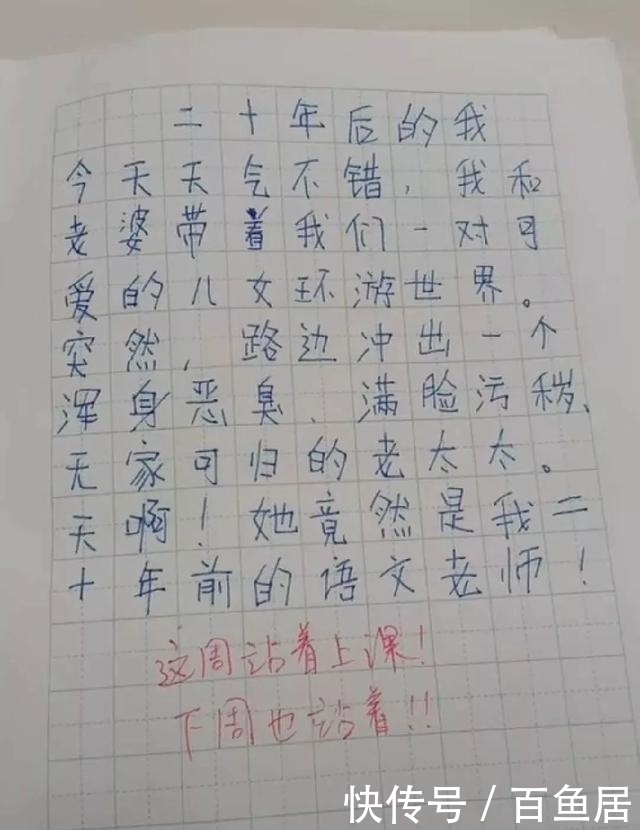 二十年后的我
今天天气不错，我和
老婆带着我们一对可
爱的儿女环游世界。
突然，路边冲出一个
浑身恶臭、满脸污秽、
无家可归的老太太。
天啊！她竟然是我二
十年前的语文老师！
这周站着上课！
下周也站着！！
快传号／百鱼居